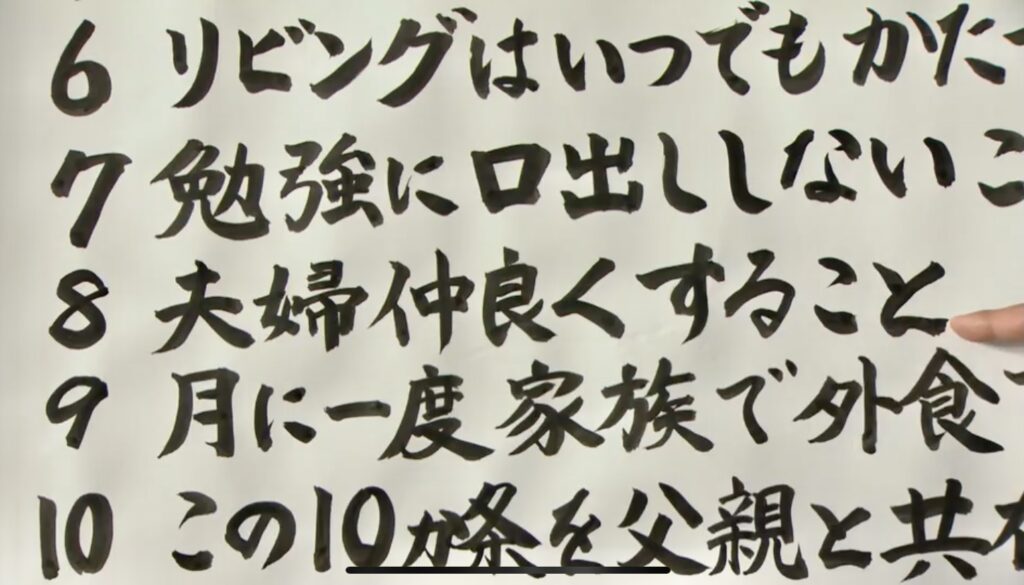 6 リビングはいつでもかた
7 勉強に口出ししないこ
8 夫婦仲良くすること
9 月に一度家族で外食
10 この10か条を父親と共